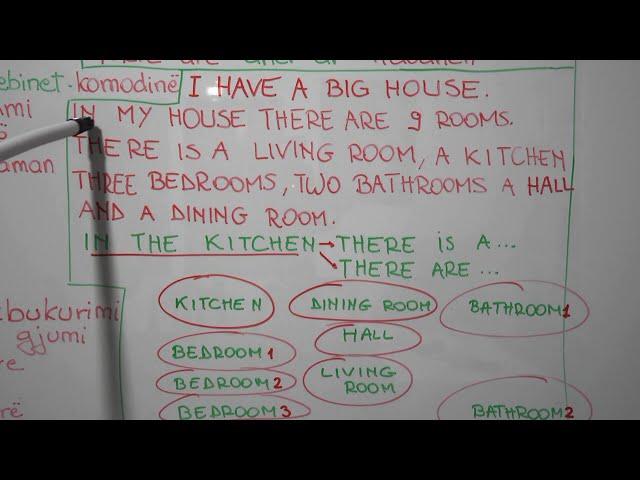 komodinë
I HAVE A BIG HOUSE.
IN MY HOUSE THERE ARE 9 ROOMS.
THERE IS A LIVING ROOM, A KITCHEN
THREE BEDROOMS, TWO BATHROOMS A HALL
AND A DINING ROOM.
IN THE KITCHEN → THERE IS A ...
THERE ARE ...
KITCHEN DINING ROOM BATHROOM 1
HALL
gjumi
BEDROOM 1
LIVING ROOM
BEDROOM 2
BEDROOM 3 BATHROOM 2